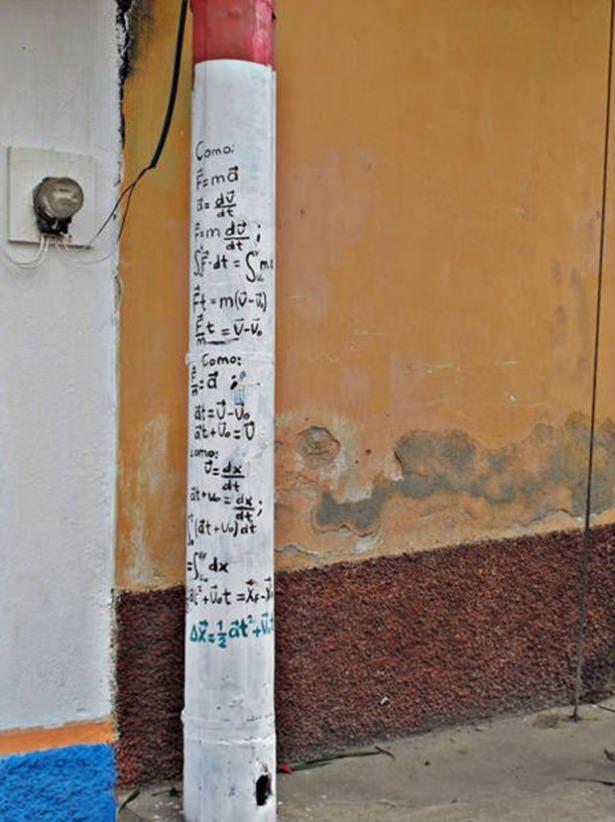 Como:
F⃗=ma⃗
a⃗=dv⃗/dt
F⃗=m dv⃗/dt ;
∫F⃗·dt = ∫m
F⃗t = m(v⃗-v⃗₀)
F⃗/m t = v⃗-v⃗₀
Como:
F⃗/m=a⃗ ;
a⃗t=v⃗-v⃗₀
a⃗t+v⃗₀=v⃗
como:
v⃗=dx/dt
a⃗t+v₀=dx/dt;
∫(a⃗t+v₀)dt
=∫dx
at²+v⃗₀t =x⃗F-x⃗
Δx⃗=½a⃗t²+v⃗₀t